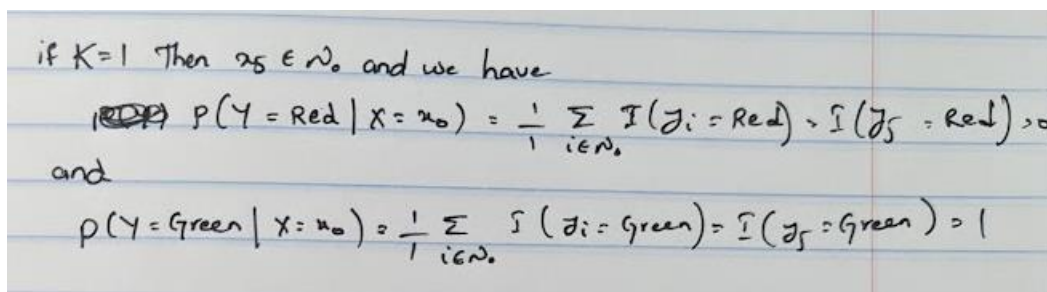 if K=1 Then x₅ ∈ N₀ and we have
P(Y = Red | X = x₀) = 1/1 Σ i∈N₀ I(yᵢ = Red) = I(y₅ = Red) = 0
and
P(Y = Green | X = x₀) = 1/1 Σ i∈N₀ I(yᵢ = Green) = I(y₅ = Green) = 1